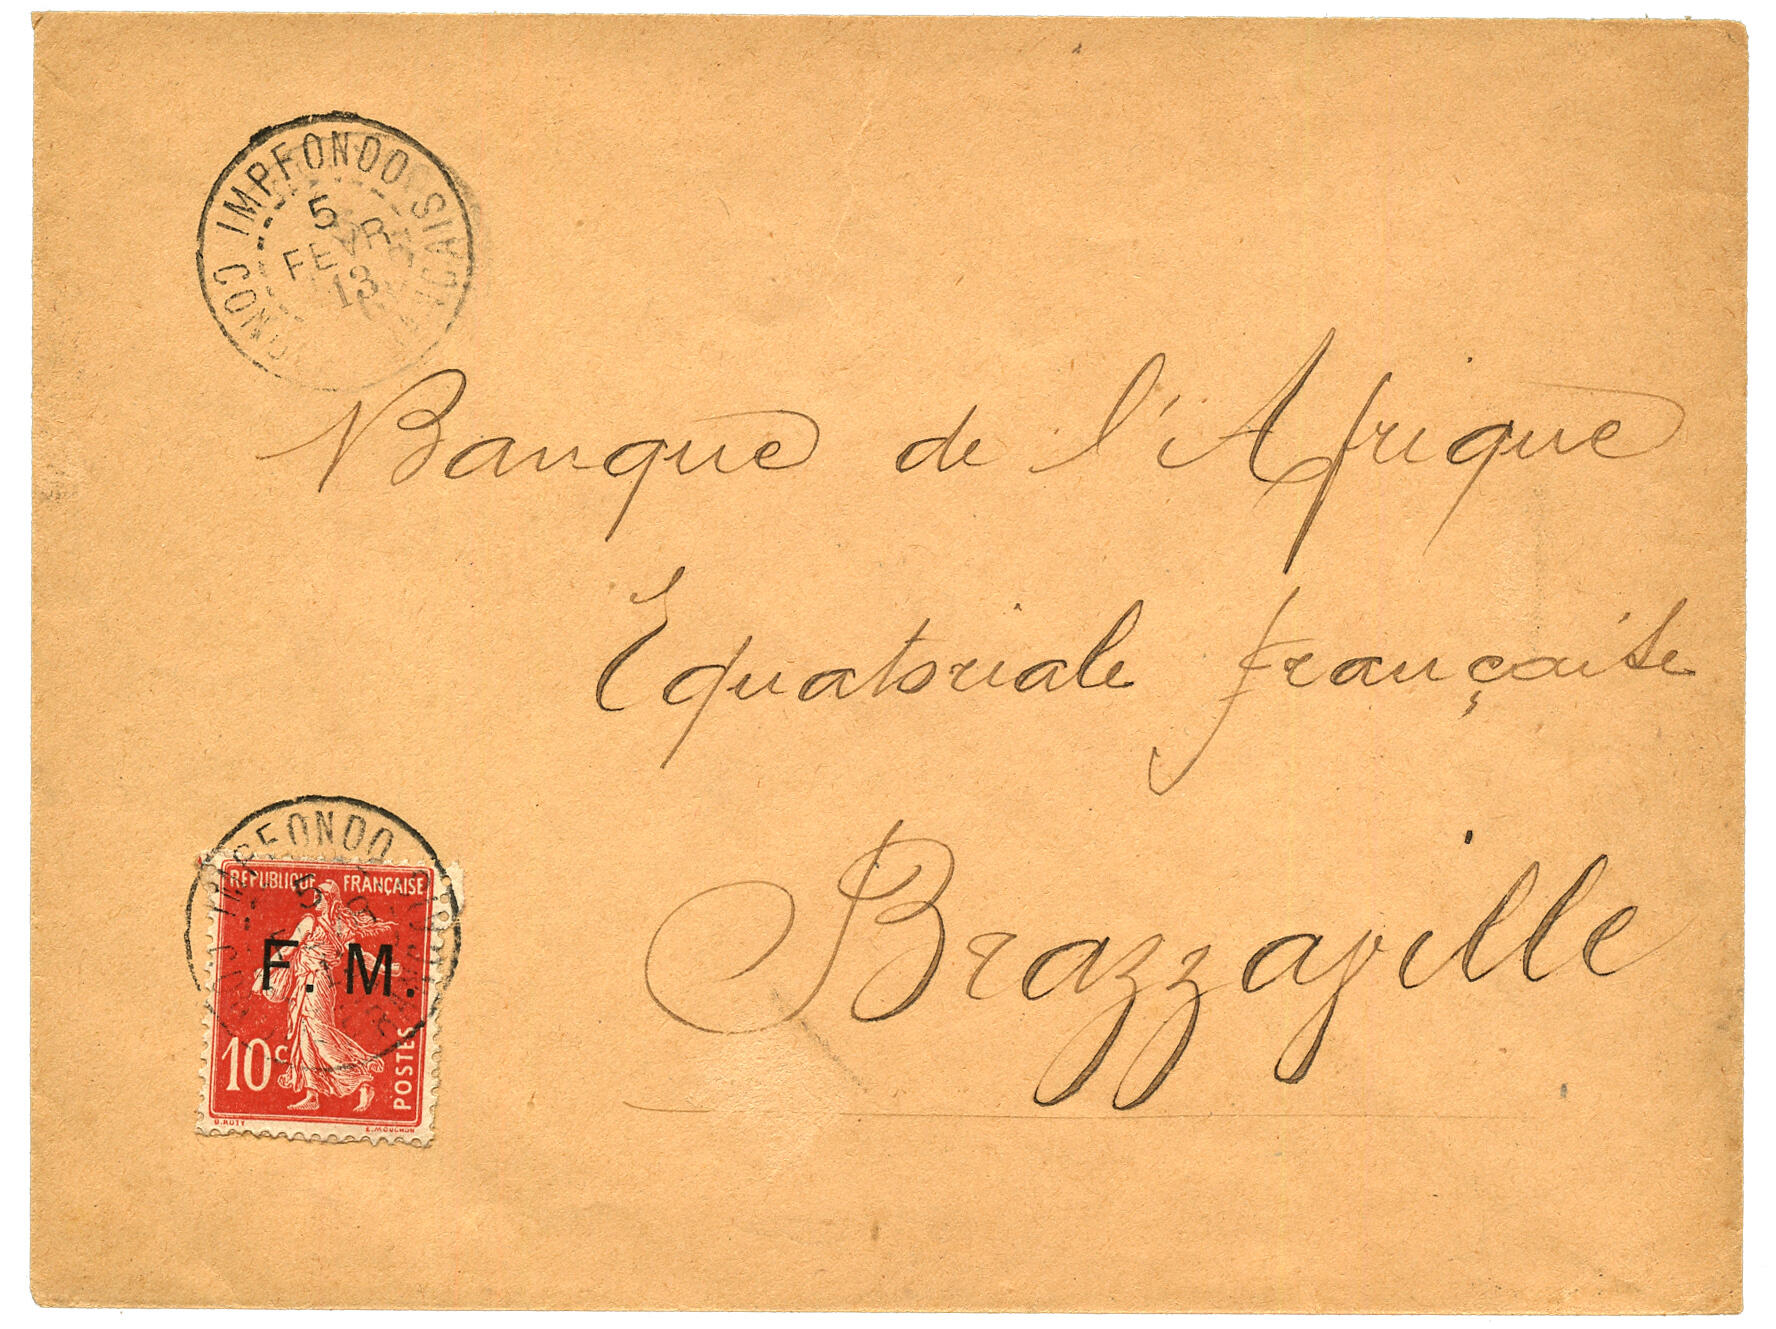 IMPFONDO
5
FEVR
13
CONGO
Banque de l'Afrique
Equatoriale française
Brazzaville
IMPFONDO
5
REPUBLIQUE FRANÇAISE
F. M.
10c
POSTES
O. ROTY E. MOUCHON